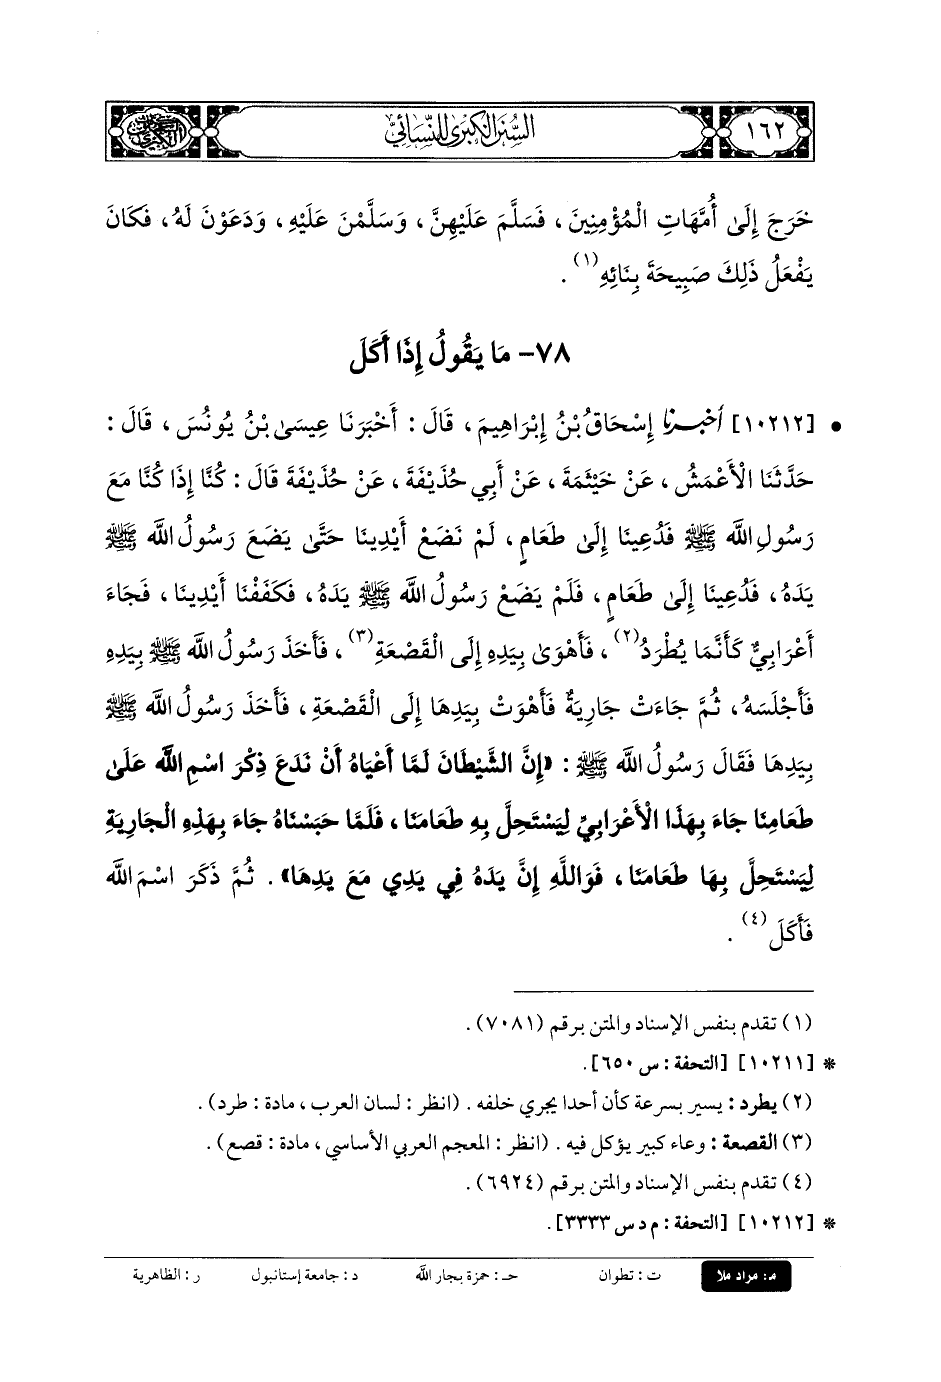 ١٦٢
السُّنَنُ الكُبْرَىٰ لِلنَّسَائِيِّ
خَرَجَ إِلَىٰ أُمَّهَاتِ الْمُؤْمِنِينَ، فَسَلَّمَ عَلَيْهِنَّ، وَسَلَّمْنَ عَلَيْهِ، وَدَعَوْنَ لَهُ، فَكَانَ
يَفْعَلُ ذَلِكَ صَبِيحَةَ بِنَائِهِ(١).
٧٨- مَا يَقُولُ إِذَا أَكَلَ
• [١٠٢١٢] أَخْبَرَنَا إِسْحَاقُ بْنُ إِبْرَاهِيمَ، قَالَ: أَخْبَرَنَا عِيسَىٰ بْنُ يُونُسَ، قَالَ:
حَدَّثَنَا الْأَعْمَشُ، عَنْ خَيْثَمَةَ، عَنْ أَبِي حُذَيْفَةَ، عَنْ حُذَيْفَةَ قَالَ: كُنَّا إِذَا كُنَّا مَعَ
رَسُولِ اللَّه ﷺ فَدُعِينَا إِلَى طَعَامٍ، لَمْ نَضَعْ أَيْدِينَا حَتَّىٰ يَضَعَ رَسُولُ اللَّه ﷺ
يَدَهُ، فَدُعِينَا إِلَى طَعَامٍ، فَلَمْ يَضَعْ رَسُولُ اللَّه ﷺ يَدَهُ، فَكَفَفْنَا أَيْدِينَا، فَجَاءَ
أَعْرَابِيٌّ كَأَنَّمَا يُطْرَدُ(٢)، فَأَهْوَىٰ بِيَدِهِ إِلَى الْقَصْعَةِ(٣)، فَأَخَذَ رَسُولُ اللَّه ﷺ بِيَدِهِ
فَأَجْلَسَهُ، ثُمَّ جَاءَتْ جَارِيَةٌ فَأَهْوَتْ بِيَدِهَا إِلَى الْقَصْعَةِ، فَأَخَذَ رَسُولُ اللَّه ﷺ
بِيَدِهَا فَقَالَ رَسُولُ اللَّه ﷺ: «إِنَّ الشَّيْطَانَ لَمَّا أَعْيَاهُ أَنْ نَدَعَ ذِكْرَ اسْمِ اللَّه عَلَىٰ
طَعَامِنَا جَاءَ بِهَذَا الْأَعْرَابِيِّ لِيَسْتَحِلَّ بِهِ طَعَامَنَا، فَلَمَّا حَبَسْنَاهُ جَاءَ بِهَذِهِ الْجَارِيَةِ
لِيَسْتَحِلَّ بِهَا طَعَامَنَا، فَوَاللَّهِ إِنَّ يَدَهُ فِي يَدِي مَعَ يَدِهَا». ثُمَّ ذَكَرَ اسْمَ اللَّه
فَأَكَلَ(٤).
(١) تقدم بنفس الإسناد والمتن برقم (٧٠٨١).
* [١٠٢١١] [التحفة: س ٦٥٠].
(٢) يطرد: يسير بسرعة كأن أحدا يجري خلفه. (انظر: لسان العرب، مادة: طرد).
(٣) القصعة: وعاء كبير يؤكل فيه. (انظر: المعجم العربي الأساسي، مادة: قصع).
(٤) تقدم بنفس الإسناد والمتن برقم (٦٩٢٤).
* [١٠٢١٢] [التحفة: م د س ٣٣٣٣].
م: مراد ملا ت: تطوان حـ: حمزة بجار اللَّه د: جامعة إستانبول ر: الظاهرية